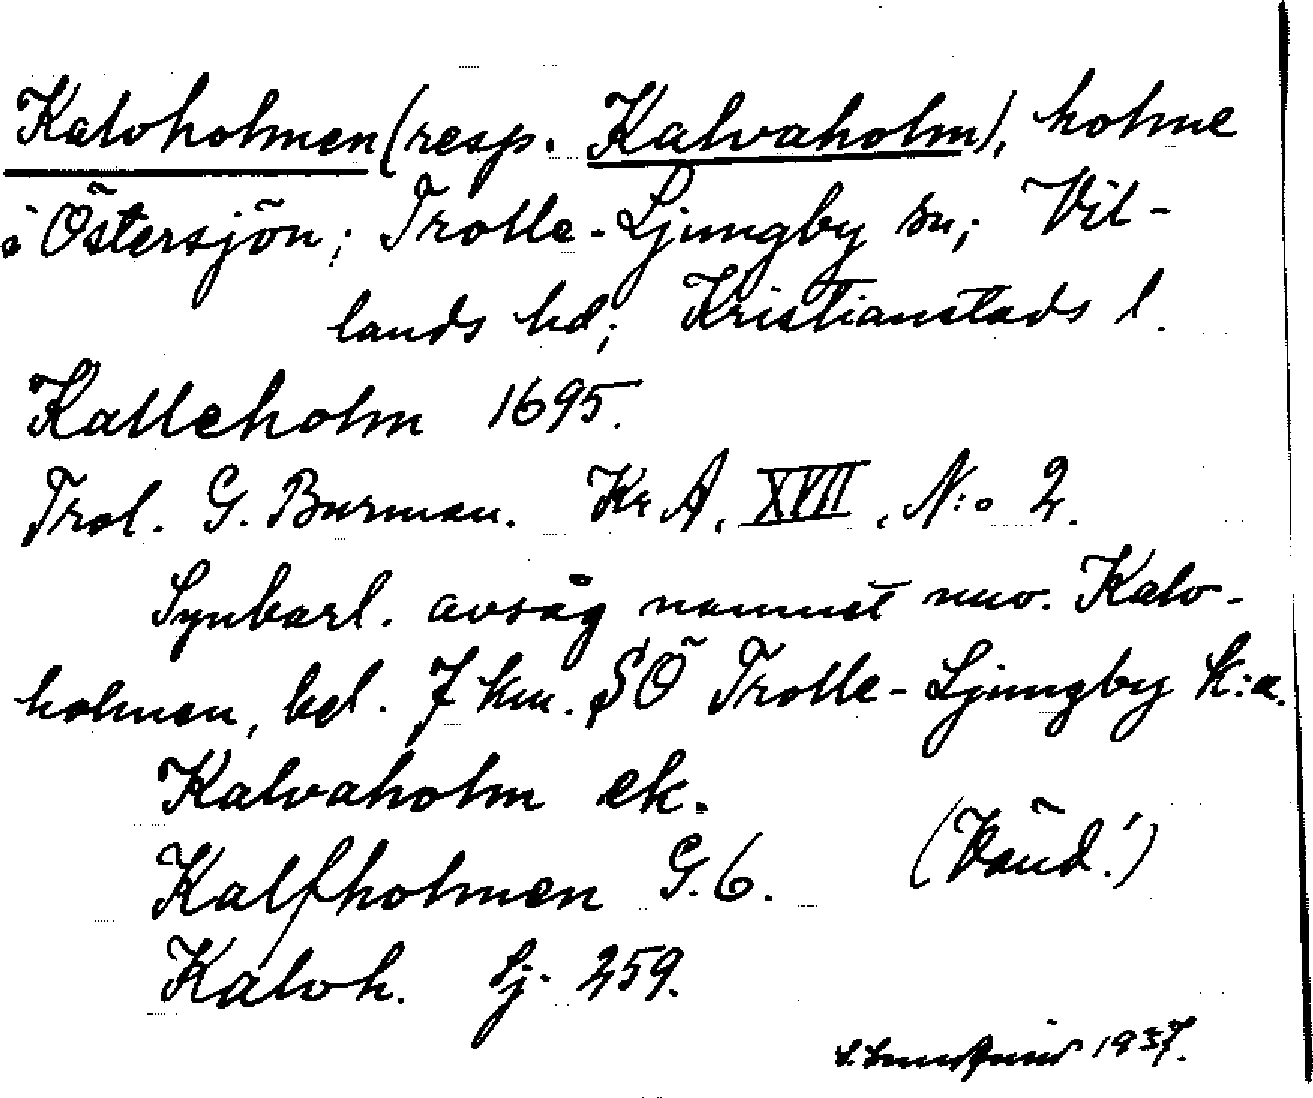 Kalvholmen (resp. Kalvaholm), holme
i Östersjön; Trolle-Ljungby sn; Vil-
lands hd; Kristianstads l.
Kalleholm 1695.
Trol. G. Burman. Kr A. XVII. N:o 2.
Synbarl. avsåg namnet nuv. Kalv-
holmen, bel. 7 km. SÖ Trolle-Ljungby k:a.
Kalvaholm ek.
Kalfholmen G. 6. (Vänd!)
Kalvh. Sj. 259.
1937.